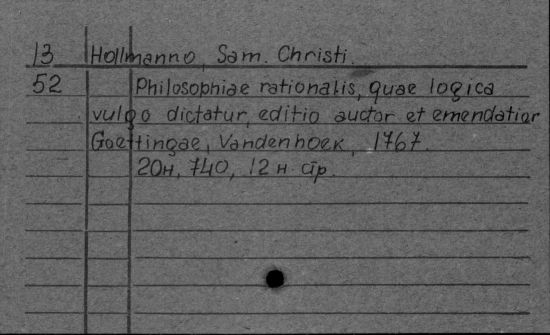 13 Hollmanno, Sam. Christi.
52 Philosophiae rationalis, quae logica
vulgo dictatur, editio auctor et emendatior
Goettingae, Vandenhoek, 1767.
20н, 740, 12 н. āp.